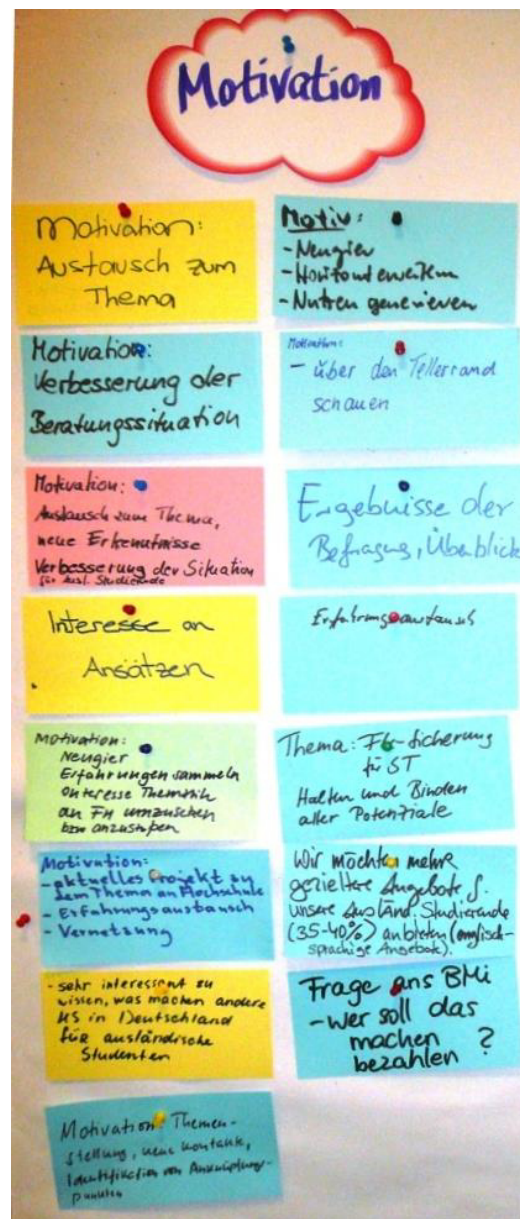 Motivation
Motivation:
Austausch zum
Thema
Motivation:
Verbesserung der
Beratungssituation
Motivation:
Austausch zum Thema,
neue Erkenntnisse
Verbesserung der Situation
für ausl. Studierende
Interesse an
Ansätzen
Motivation:
Neugier
Erfahrungen sammeln
Interesse Thematik
an FH umzusetzen
bzw anzustupsen
Motivation:
- aktuelles Projekt zu
dem Thema an Hochschule
- Erfahrungsaustausch
- Vernetzung
- sehr interessant zu
wissen, was machen andere
HS in Deutschland
für ausländische
Studenten
Motivation: Themen-
stellung, neue Kontakte,
Identifikation von Anknüpfungs-
punkten
Motiv:
- Neugier
- Horizont erweitern
- Nutzen generieren
Motivation:
- über den Tellerrand
schauen
Ergebnisse der
Befragung, Überblick
Erfahrungsaustausch
Thema: -sicherung
für ST
Halten und Binden
aller Potenziale
Wir möchten mehr
gezieltere Angebote f.
unsere Ausländ. Studierende
(35-40%) anbieten (englisch-
sprachige Angebote).
Frage ans BMi
- wer soll das
machen
bezahlen ?